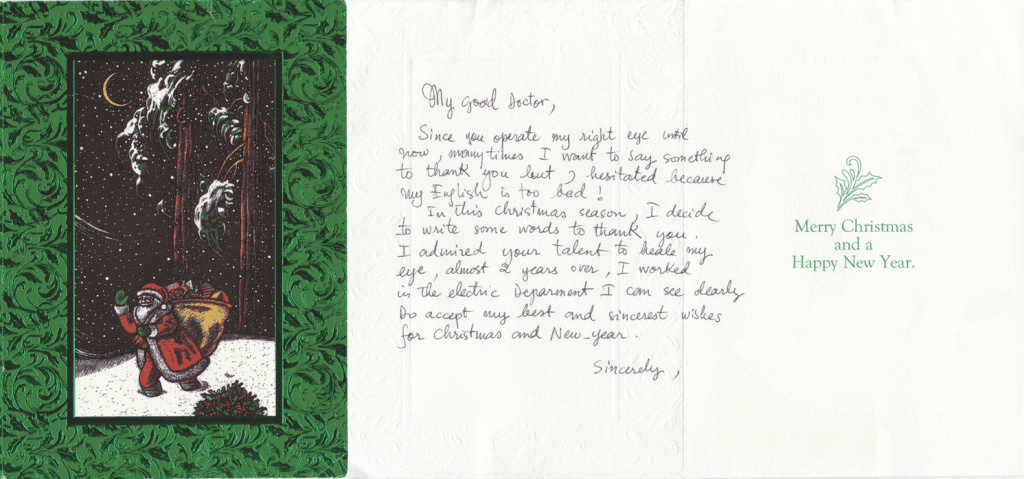 My Good Doctor,
Since you operate my right eye until
now, many times I want to say something
to thank you but I hesitated because
my English is too bad!
In this Christmas season, I decide
to write some words to thank you.
I admired your talent to heale my
eye, almost 2 years over, I worked
in The electric Deparment I can see clearly
Do accept my best and sincerest wishes
for Christmas and New-year.
Sincerely,
Merry Christmas
and a
Happy New Year.